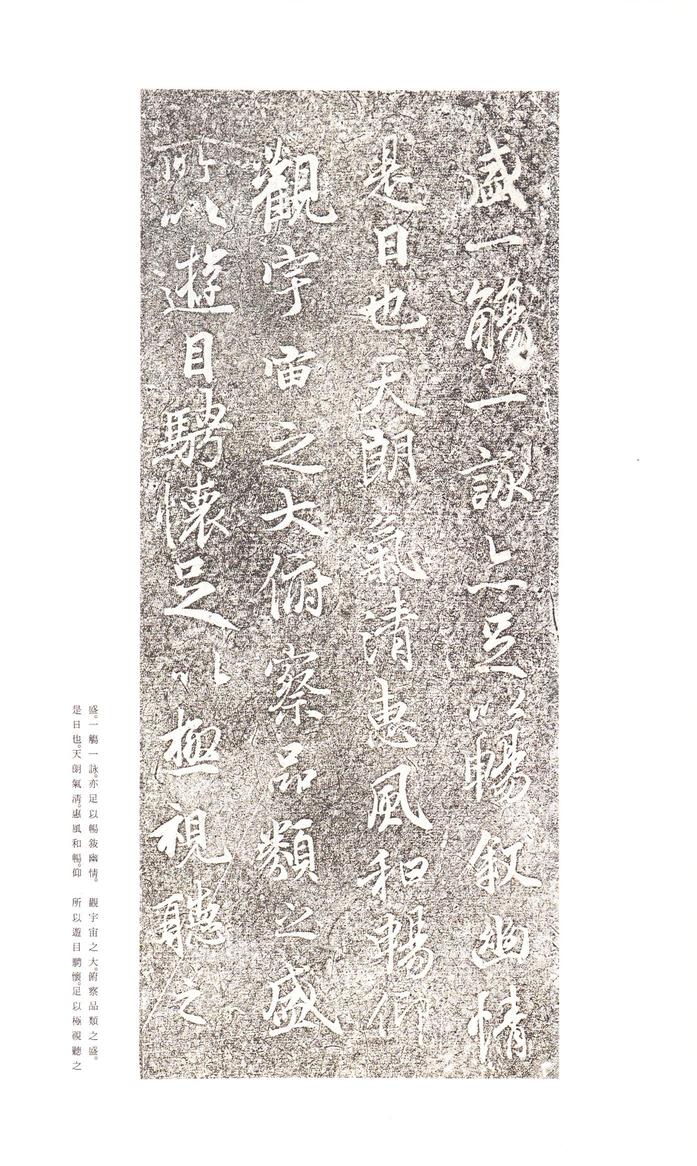 盛一觴一詠亦足以暢叙幽情
是日也天朗氣清惠風和暢仰
觀宇宙之大俯察品類之盛
所以遊目騁懷足以極視聽之
盛。一觴一詠。亦足以暢敘幽情。
是日也。天朗氣清。惠風和暢。仰
觀宇宙之大。俯察品類之盛。
所以遊目騁懷。足以極視聽之